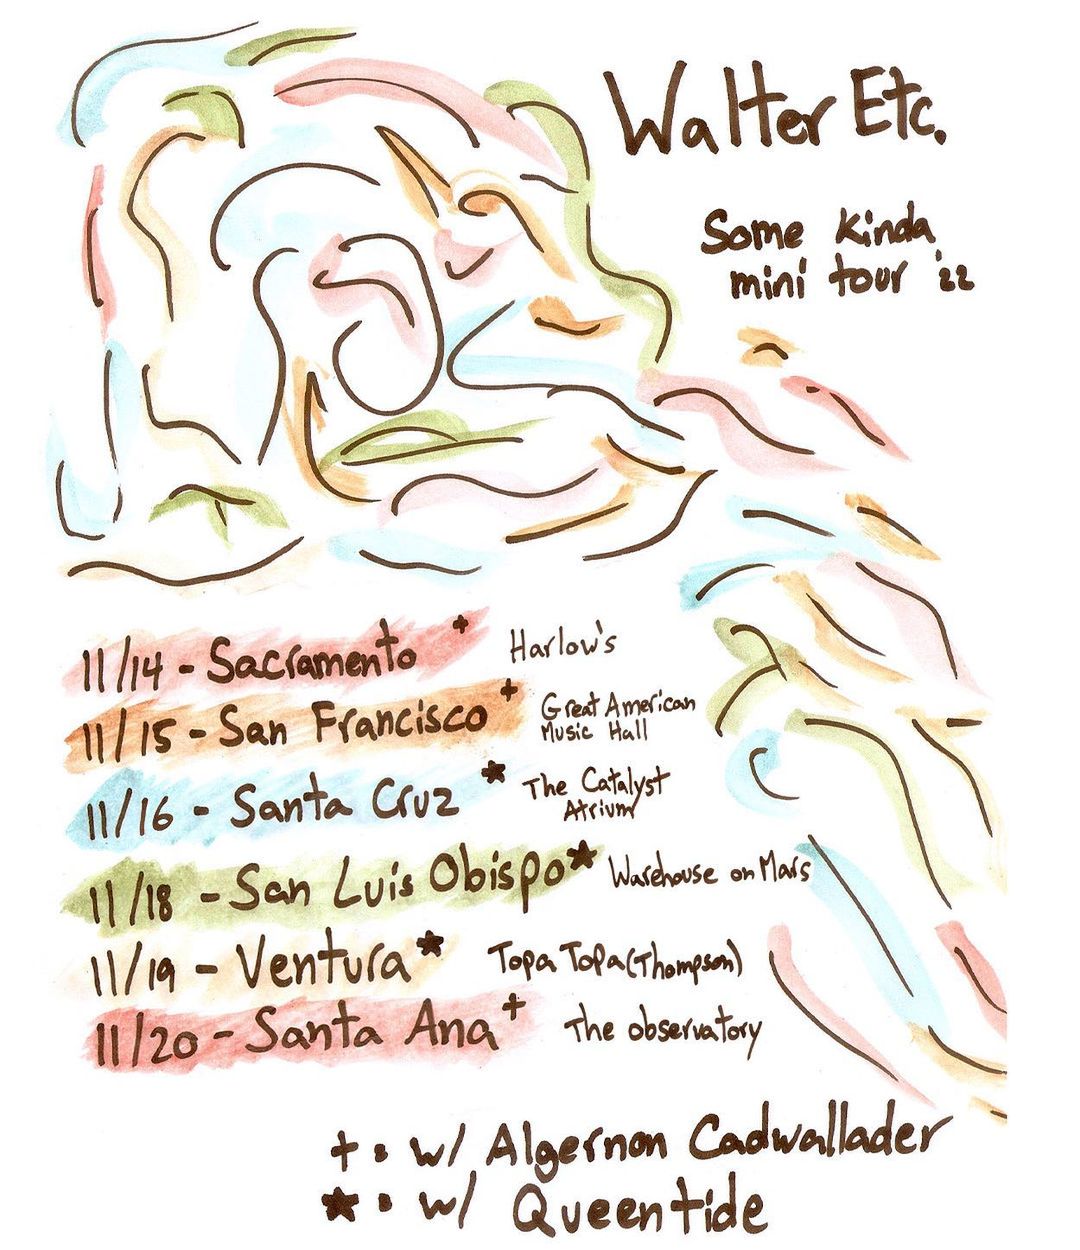 Walter Etc.
Some Kinda
mini tour '22
11/14 - Sacramento + Harlow's
11/15 - San Francisco + Great American
Music Hall
11/16 - Santa Cruz ★ The Catalyst
Atrium
11/18 - San Luis Obispo ★ Warehouse on Mars
11/19 - Ventura ★ Topa Topa (Thompson)
11/20 - Santa Ana + The observatory
+ : w/ Algernon Cadwallader
★ : w/ Queentide